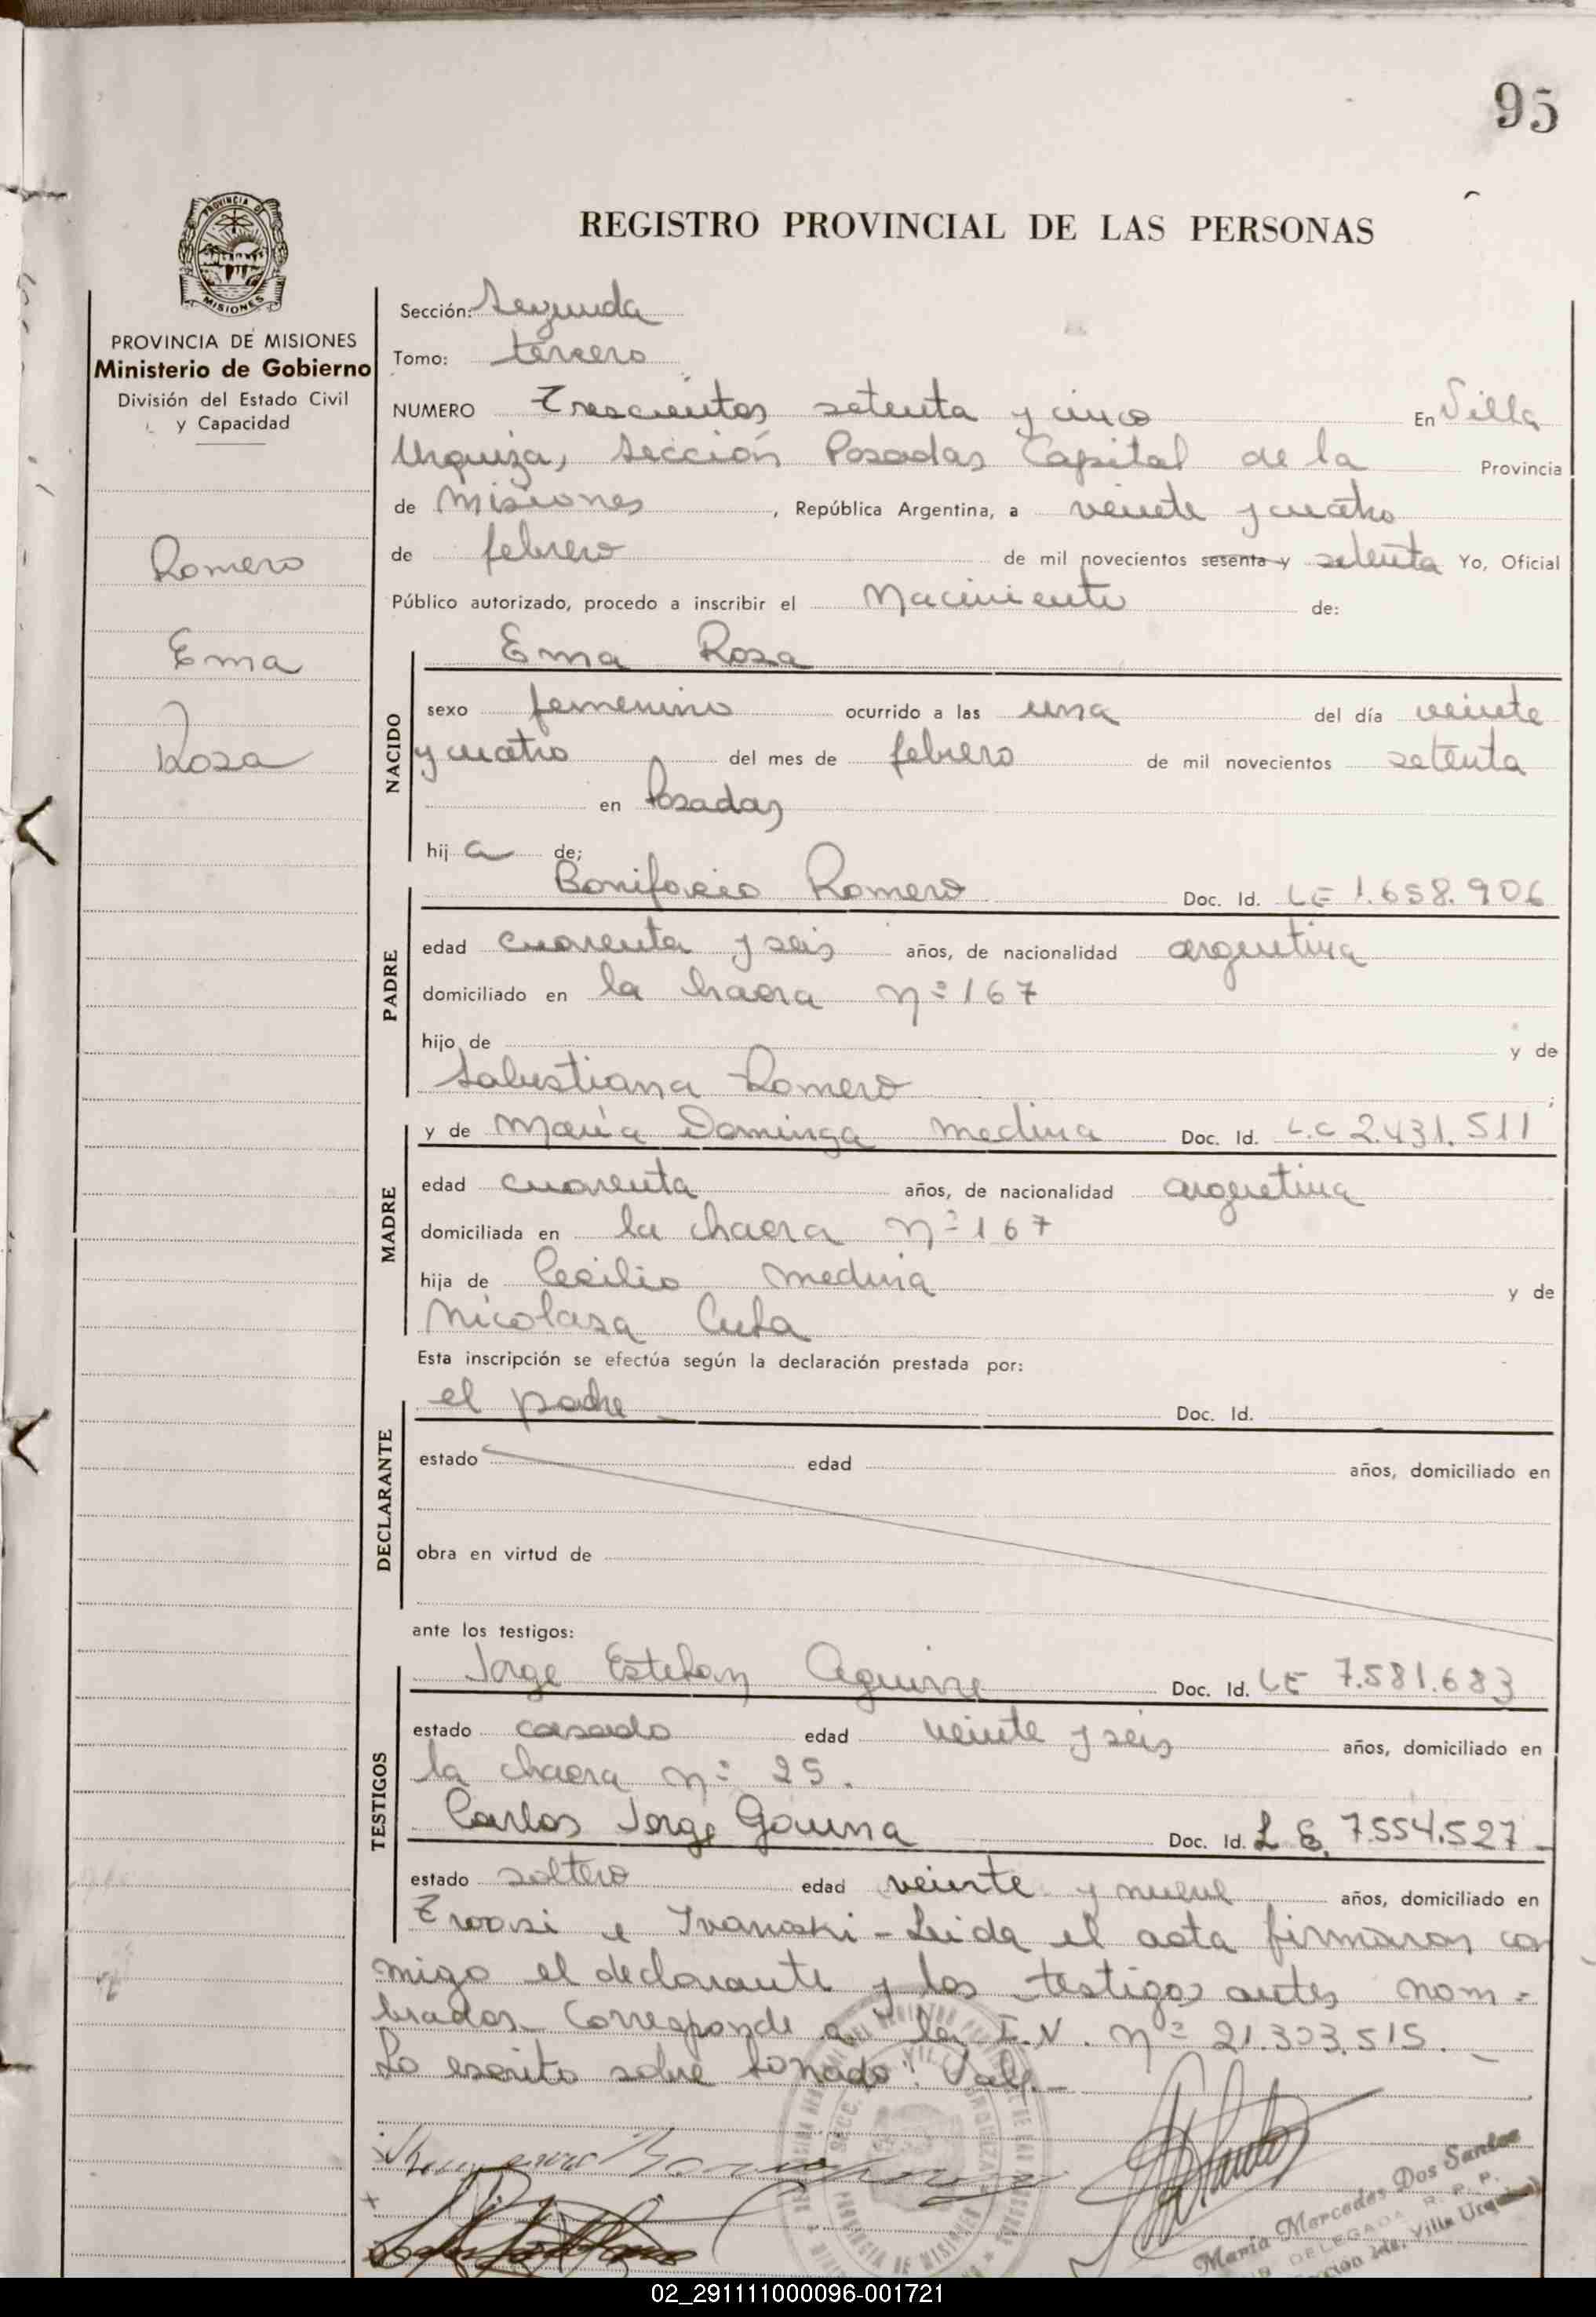 95
PROVINCIA DE MISIONES
REGISTRO PROVINCIAL DE LAS PERSONAS
PROVINCIA DE MISIONES
Ministerio de Gobierno
División del Estado Civil
y Capacidad
Romero
Ema
Rosa
Sección: Segunda
Tomo: tercero
NUMERO Trescientos setenta y cinco En Villa
Urquiza, Sección Posadas Capital de la Provincia
de Misiones, República Argentina, a veinte y cuatro
de febrero de mil novecientos sesenta y setenta Yo, Oficial
Público autorizado, procedo a inscribir el Nacimiento de:
NACIDO
Ema Rosa
sexo femenino ocurrido a las una del día veinte
y cuatro del mes de febrero de mil novecientos setenta
en Posadas
hij a de;
PADRE
Bonifacio Romero Doc. Id. LE 1.658.906
edad cuarenta y seis años, de nacionalidad argentina
domiciliado en la hacra nº 167
hijo de y de
Salustiana Romero ;
MADRE
y de María Dominga Medina Doc. Id. L.C 2.431.511
edad cuarenta años, de nacionalidad argentina
domiciliada en la chacra nº 167
hija de Cecilio Medina y de
Nicolasa
Esta inscripción se efectúa según la declaración prestada por:
DECLARANTE
el padre Doc. Id.
estado edad años, domiciliado en
obra en virtud de
ante los testigos:
TESTIGOS
Jorge Esteban Aguirre Doc. Id. LE 7.581.683
estado casado edad veinte y seis años, domiciliado en
la chacra nº 25.
Carlos Jorge Gauna Doc. Id. L E. 7.554.527
estado soltero edad veinte y nueve años, domiciliado en
e Ivanoski - Leida el acta firmaron con
migo el declarante y los testigos antes nom-
brados. Corresponde a la I.N. nº 21.303.515.
Lo escrito sobre borrado: Vale.
María Mercedes Dos Santos
DELEGADA R. P. P.
Villa Urquiza
02_291111000096-001721